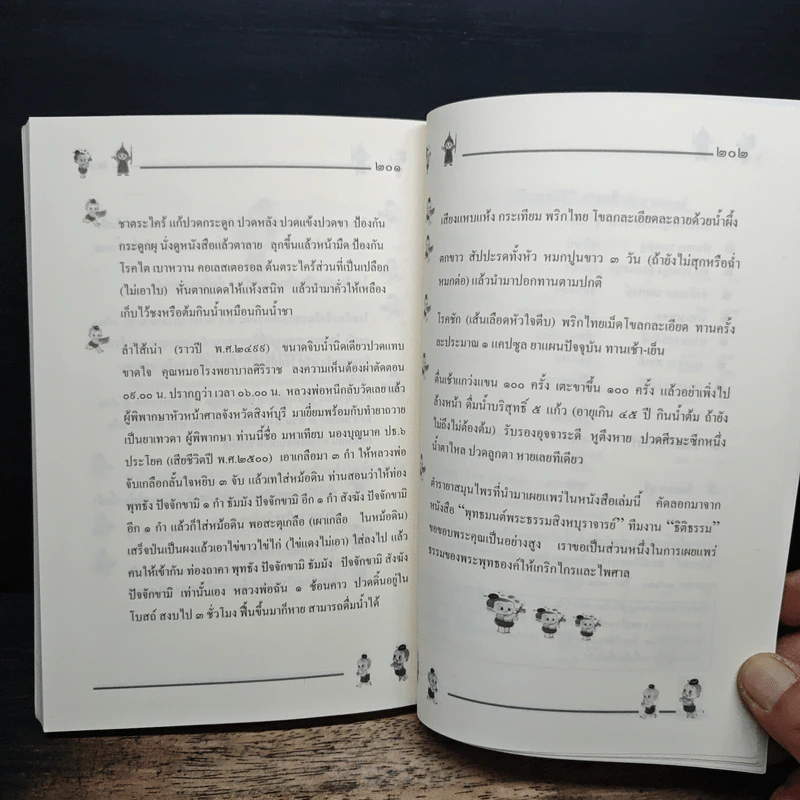 ๒๐๑
ชาตระไคร้ แก้ปวดกระดูก ปวดหลัง ปวดแข้งปวดขา ป้องกัน
กระดูกผุ นั่งดูหนังสือแล้วตาลาย ลุกขึ้นแล้วหน้ามืด ป้องกัน
โรคไต เบาหวาน คอเลสเตอรอล ต้นตระไคร้ส่วนที่เป็นเปลือก
(ไม่เอาใบ) หั่นตากแดดให้แห้งสนิท แล้วนำมาคั่วให้เหลือง
เก็บไว้ชงหรือต้มกินน้ำเหมือนกินน้ำชา
ลำไส้เน่า (ราวปี พ.ศ.๒๔๙๙) ขนาดจิบน้ำนิดเดียวปวดแทบ
ขาดใจ คุณหมอโรงพยาบาลศิริราช ลงความเห็นต้องผ่าตัดตอน
๐๙.๐๐ น. ปรากฏว่า เวลา ๐๖.๐๐ น. หลวงพ่อหนีกลับวัดเลย แล้ว
ผู้พิพากษาหัวหน้าศาลจังหวัดสิงห์บุรี มาเยี่ยมพร้อมกับทำยาถวาย
เป็นยาเทวดา ผู้พิพากษา ท่านนี้ชื่อ มหาเทียบ นองบุญนาค ปธ.๖
ประโยค (เสียชีวิตปี พ.ศ.๒๕๐๐) เอาเกลือมา ๓ กำ ให้หลวงพ่อ
จับเกลือกลั้นใจหยิบ ๓ จับ แล้วเทใส่หม้อดิน ท่านสอนว่าให้ท่อง
พุทธัง ปัจจักขามิ ๑ กำ ธัมมัง ปัจจักขามิ อีก ๑ กำ สังฆัง ปัจจักขามิ
อีก ๑ กำ แล้วก็ใส่หม้อดิน พอสะตุเกลือ (เผาเกลือ ในหม้อดิน)
เสร็จป่นเป็นผงแล้วเอาไข่ขาวไข่ไก่ (ไข่แดงไม่เอา) ใส่ลงไป แล้ว
คนให้เข้ากัน ท่องคาถา พุทธัง ปัจจักขามิ ธัมมัง ปัจจักขามิ สังฆัง
ปัจจักขามิ เท่านั้นเอง หลวงพ่อฉัน ๑ ช้อนคาว ปวดดิ้นอยู่ใน
โบสถ์ สงบไป ๓ ชั่วโมง ฟื้นขึ้นมาก็หาย สามารถดื่มน้ำได้
๒๐๒
เสียงแหบแห้ง กระเทียม พริกไทย โขลกละเอียดละลายด้วยน้ำผึ้ง
ตกขาว สัปปะรดทั้งหัว หมกปูนขาว ๓ วัน (ถ้ายังไม่สุกหรือฉ่ำ
หมกต่อ) แล้วนำมาปอกทานตามปกติ
โรคชัก (เส้นเลือดหัวใจตีบ) พริกไทยเม็ดโขลกละเอียด ทานครั้ง
ละประมาณ ๑ แคปซูล ยาแผนปัจจุบัน ทานเช้า-เย็น
ตื่นเช้าแกว่งแขน ๑๐๐ ครั้ง เตะขาขึ้น ๑๐๐ ครั้ง แล้วอย่าเพิ่งไป
ล้างหน้า ดื่มน้ำบริสุทธิ์ ๕ แก้ว (อายุเกิน ๔๕ ปี กินน้ำต้ม ถ้ายัง
ไม่ถึงไม่ต้องต้ม) รับรองอุจจาระดี หูตึงหาย ปวดศีรษะซีกหนึ่ง
น้ำตาไหล ปวดลูกตา หายเลยทีเดียว
ตำรายาสมุนไพรที่นำมาเผยแพร่ในหนังสือเล่มนี้ คัดลอกมาจาก
หนังสือ “พุทธมนต์พระธรรมสิงหบุราจารย์” ทีมงาน “ธิติธรรม”
ขอขอบพระคุณเป็นอย่างสูง เราขอเป็นส่วนหนึ่งในการเผยแพร่
ธรรมของพระพุทธองค์ให้เกริกไกรและไพศาล